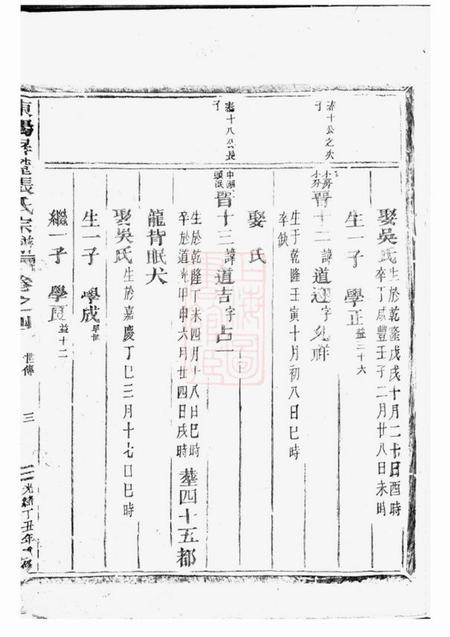 娶吳氏 生於乾隆戊戌十月二十日酉時
卒于咸豐壬子二月廿八日未時
生一子 學正 益三十六
泰十長之次子
晋十二 諱道 字
生于乾隆壬寅十月初八日巳時
卒缺
娶 氏
泰十八公長子
晋十三 諱道吉字占一
生於乾隆丁未四月十八日巳時
卒於道光甲申六月廿四日戌時 塟四十五都
龍背眠犬
娶吳氏 生於嘉慶丁巳三月十七日巳時
生一子 學成
繼一子 學良 益十二
東陽 張氏宗譜 卷之 世傳 三 光緒丁丑年